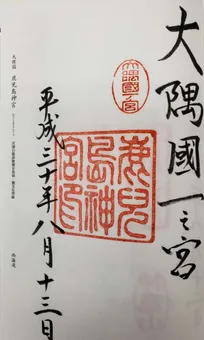 大隅國一之宮
大隅國一ノ宮
鹿児
島神
宮印
平成三十年八月十三日
大隅国 鹿児島神宮
西海道